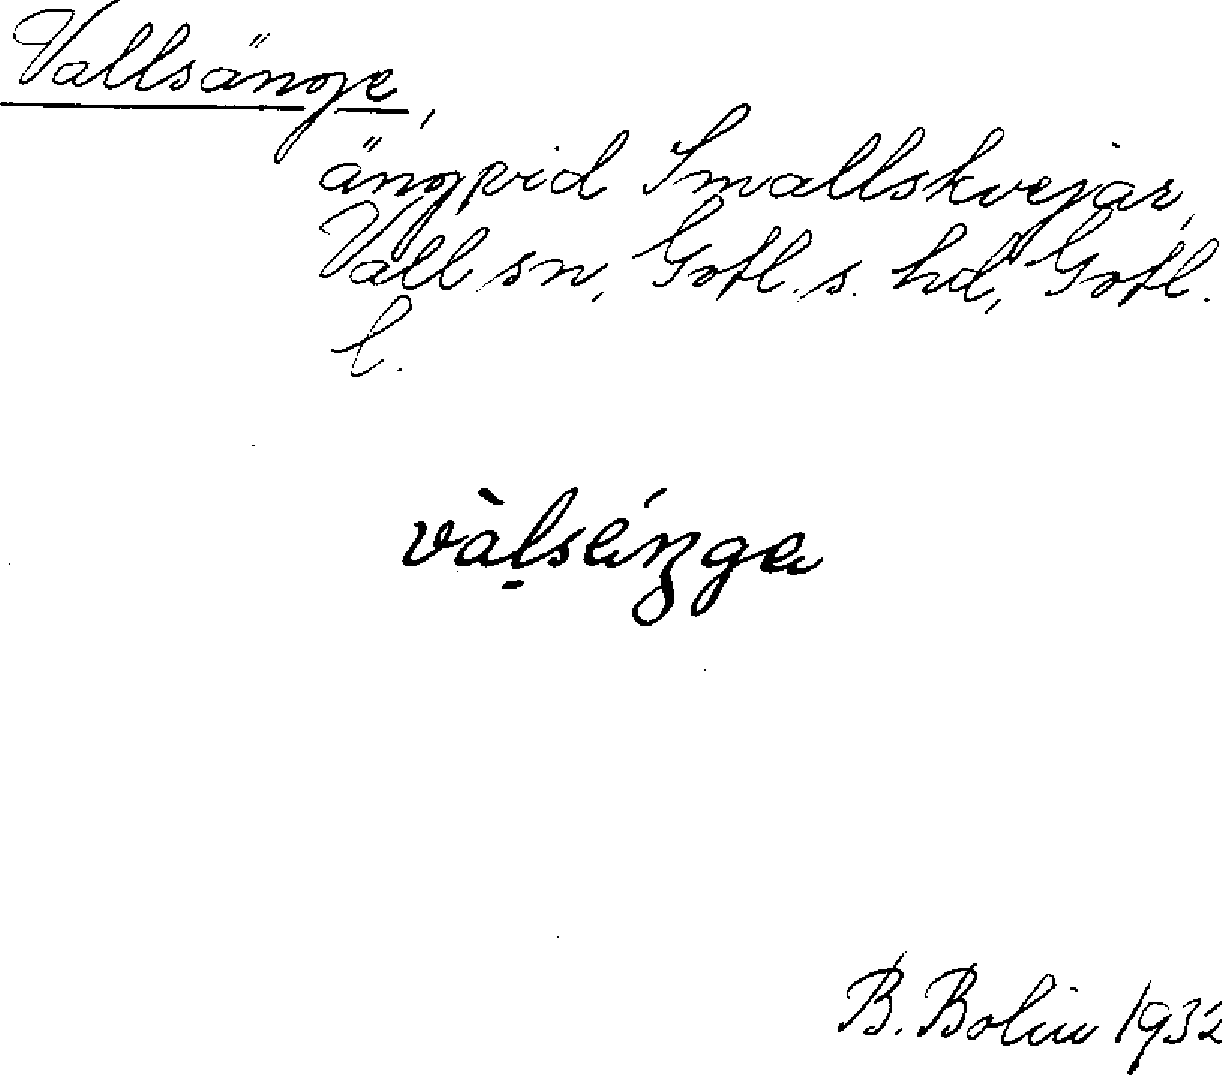 Vallsänge,
äng vid Smallskvejar,
Vall sn, Gotl. s. hd, Gotl.
l.
vàḷséŋgɐ
B. Bolin 1932